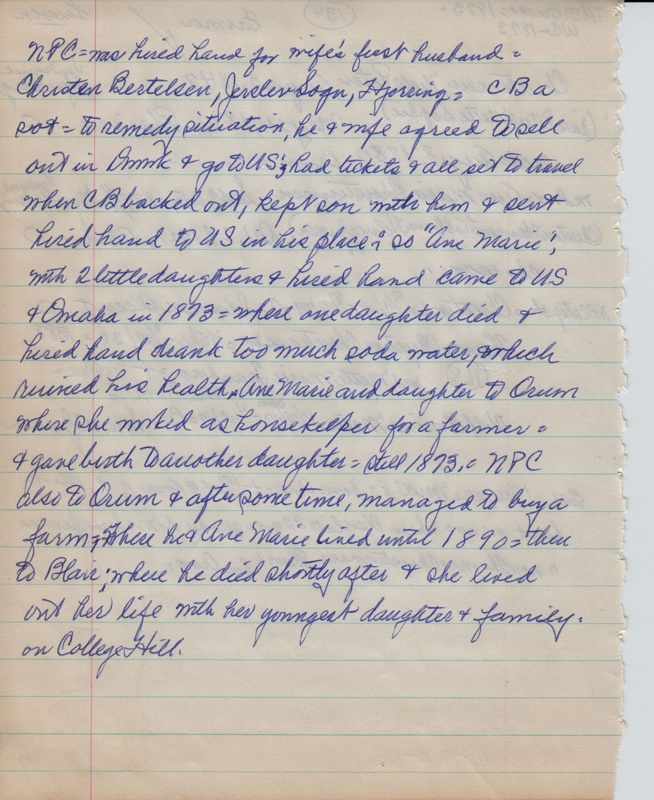 NPC = was hired hand for wife's first husband =
Christen Bertelsen, Jerslev Sogn, Hjorring = CB a
sot = to remedy situation, he & wife agreed to sell
out in Dnmk & go to US; had tickets & all set to travel
when CB backed out, kept son with him & sent
hired hand to US in his place; so "Ane Marie",
with 2 little daughters & hired hand came to US
& Omaha in 1873 = where one daughter died &
hired hand drank too much soda water, which
ruined his health. Ane Marie and daughter to Orum
where she worked as housekeeper for a farmer =
& gave birth to another daughter = still 1873. = NPC
also to Orum & after some time, managed to buy a
farm, where he & Ane Marie lived until 1890 = then
to Blair; where he died shortly after & she lived
out her life with her youngest daughter & family.
on College Hill.